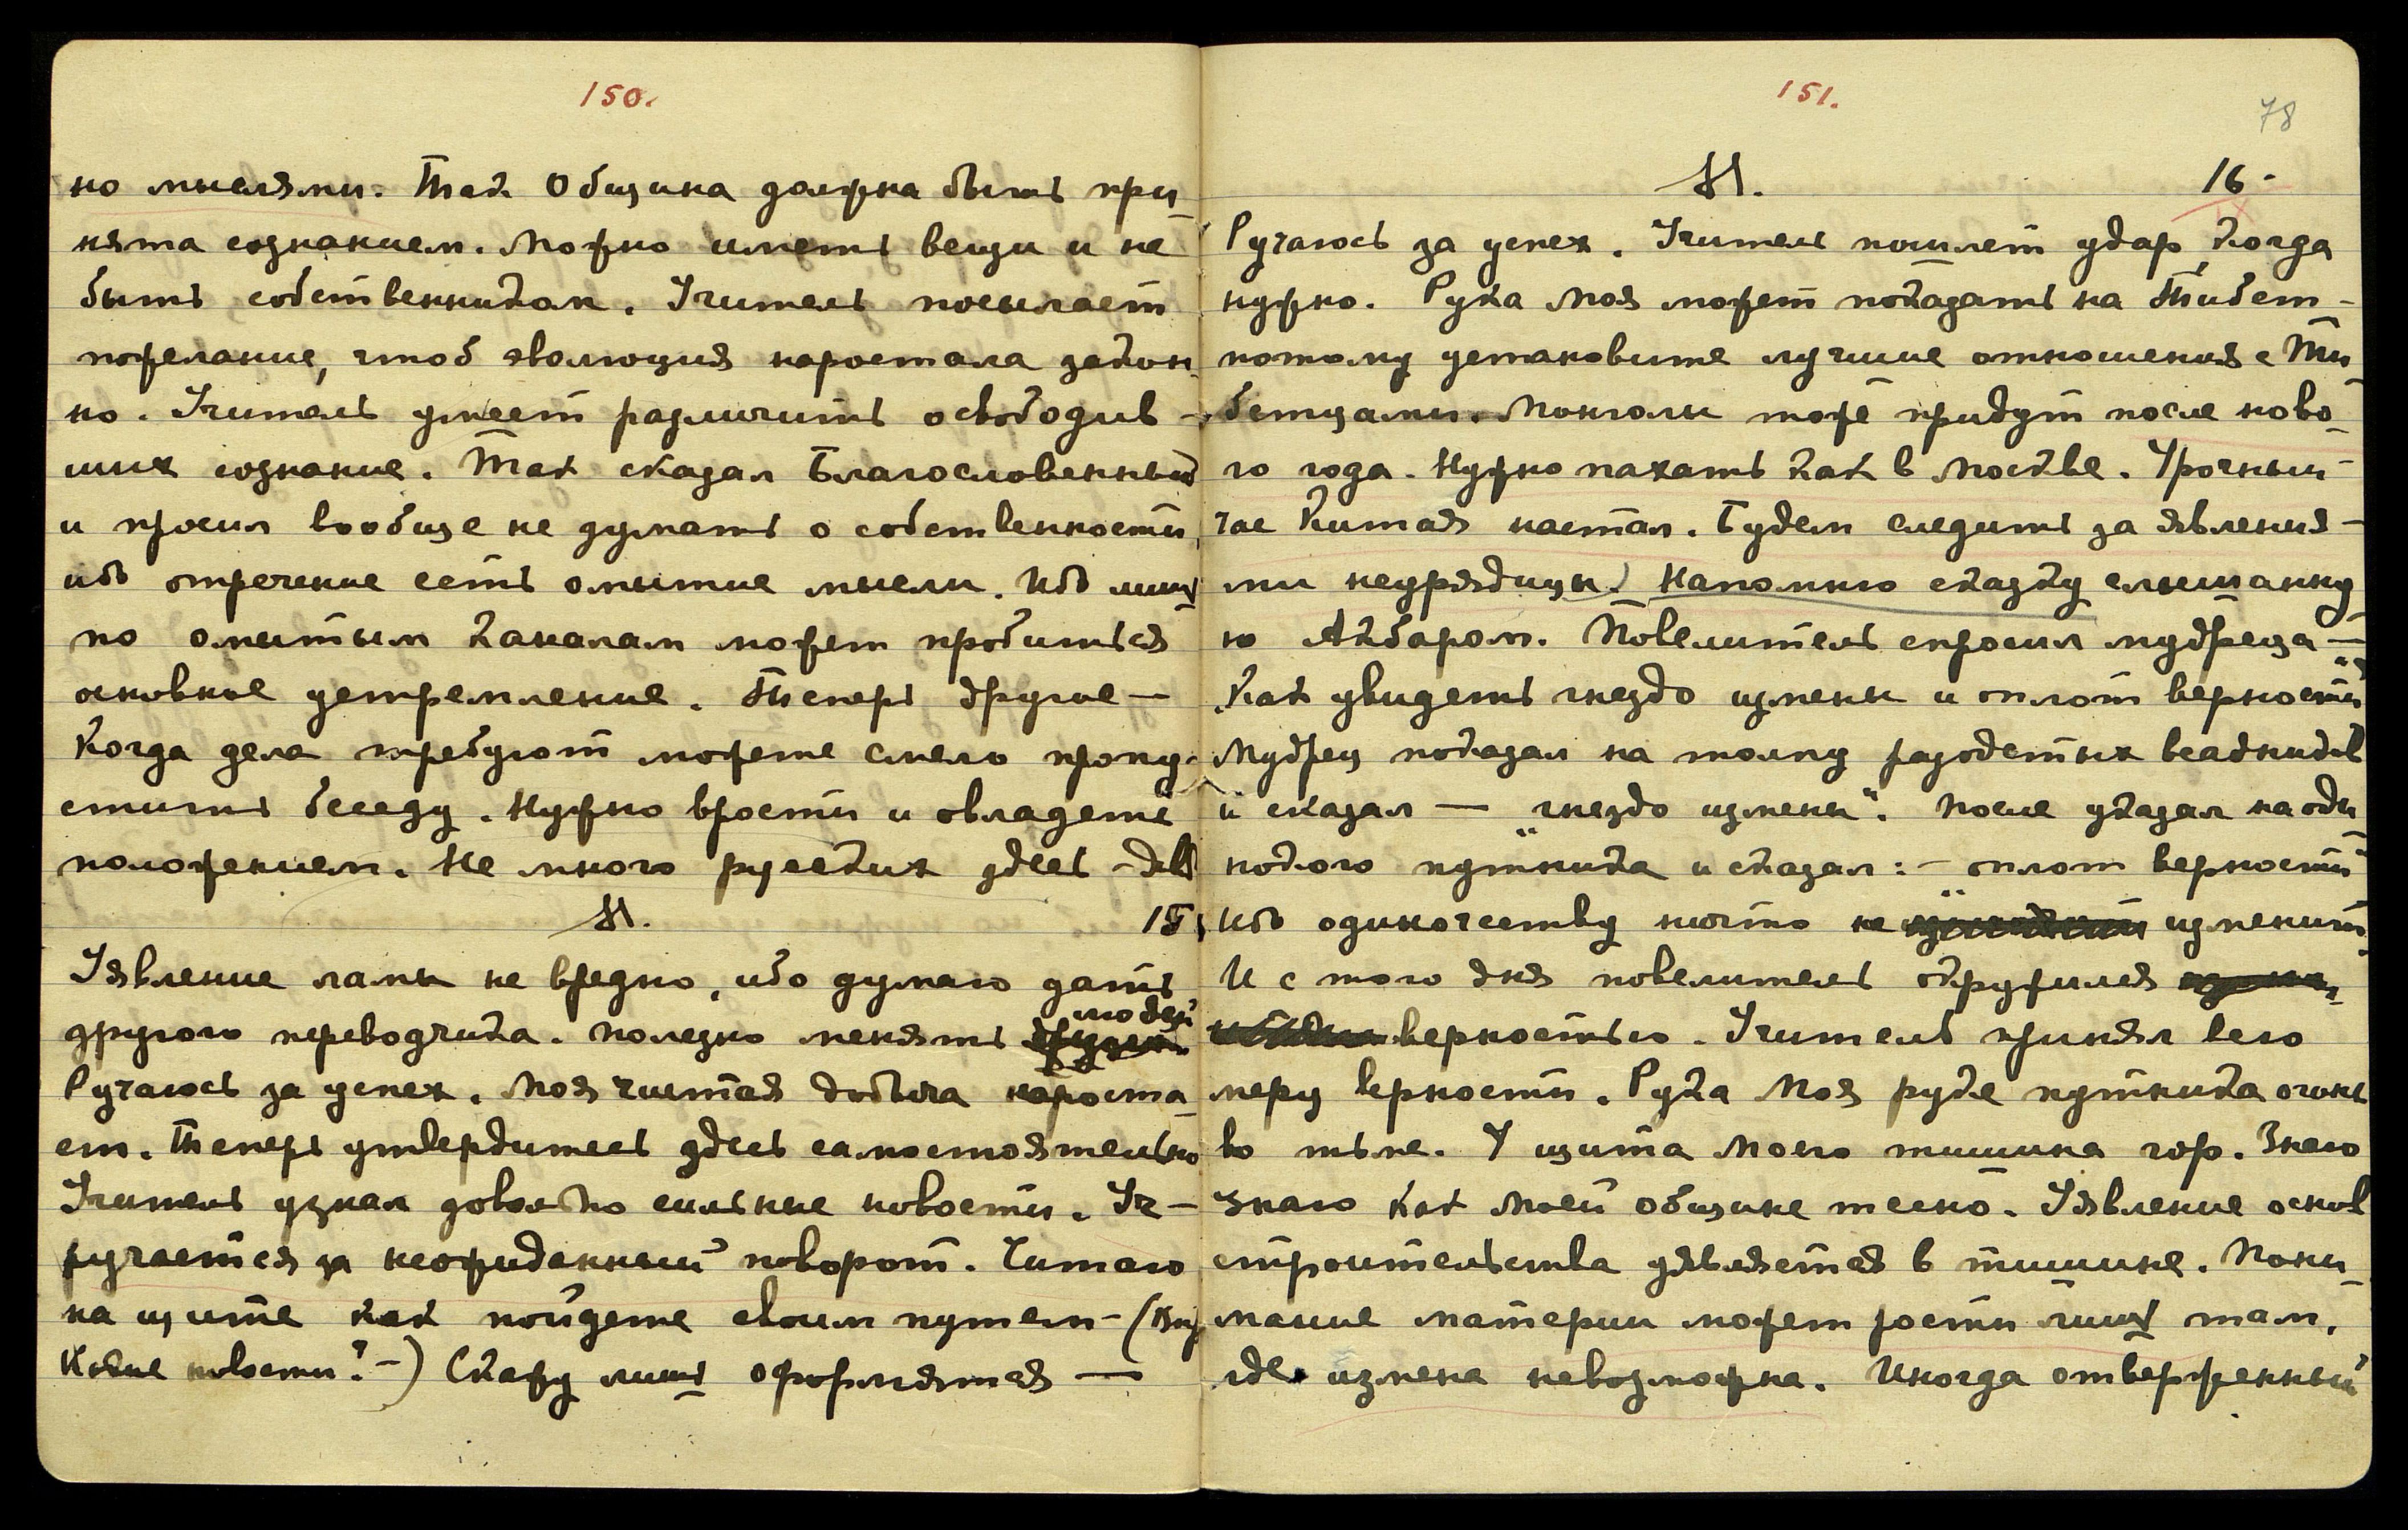 150.
но мыслями. Так Община должна быть при-
нята сознанием. Можно иметь вещи и не
быть собственником. Учитель посылает
пожелание, чтоб эволюция наростала закон-
но. Учитель умеет различить освободив-
ших сознание. Так сказал Благословенный
и просил вообще не думать о собственности,
ибо отречение есть омытие мысли. Ибо лишь
по омытым каналам может пробиться
основное устремление. Теперь другое —
Когда дела требуют можете смело пропу-
стить беседу. Нужно врости и овладеть
положением. Не много русских здесь -
15.
Уявление ламы не вредно, ибо думаю дать
другого переводчика. Полезно менять людей
Ручаюсь за успех. Моя чистая добыча нароста-
ет. Теперь утвердитесь здесь самостоятельно
Учитель узнал довольно сильные новости. Уч-
ручается за неожиданный поворот. Читаю
на щите как пойдете своим путем - (
Какие новости? -) Скажу лишь оформятся —
151.
78
16.
Ручаюсь за успех. Учитель пошлет удар когда
нужно. Рука Моя может показать на Тибет -
потому установите лучшие отношения с Ти-
бетцами. Монголы тоже придут после ново-
го года. Нужно пахать как в Москве. Урочный
час Китая настал. Будем следить за явления-
ми неурядицы.) Напомню сказку слышанну
ю Акбаром. Повелитель спросил мудреца —
"Как увидеть гнездо измены и оплот верности"
Мудрец показал на толпу разодетых всадников
и сказал — "гнездо измены". После указал на оди
нокого путника и сказал: - "оплот верности"
Ибо одиночеству ничто не изменит.
И с того дня повелитель окружился
верностью. Учитель принял всю
меру верности. Рука Моя руке путника огонь
во тьме. У щита Моего тишина гор. Знаю
знаю как Моей общине тесно. Уявление основ
строительства уявляется в тишине. Пони-
мание материи может рости лишь там,
где измена невозможна. Иногда отверженный